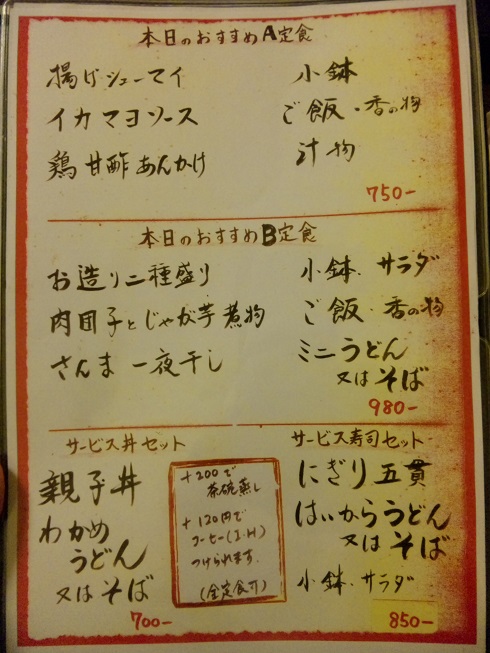 本日のおすすめA定食
揚げシューマイ
イカマヨソース
鶏甘酢あんかけ
小鉢
ご飯・香の物
汁物
750-
本日のおすすめB定食
お造り二種盛り
肉団子とじゃが芋煮物
さんま一夜干し
小鉢・サラダ
ご飯・香の物
ミニうどん
又はそば
980-
サービス丼セット
親子丼
わかめ
うどん
又はそば
700-
+200で
茶碗蒸し
+120円で
コーヒー(I・H)
つけられます。
(全定食可)
サービス寿司セット
にぎり五貫
はいからうどん
又はそば
小鉢・サラダ
850-